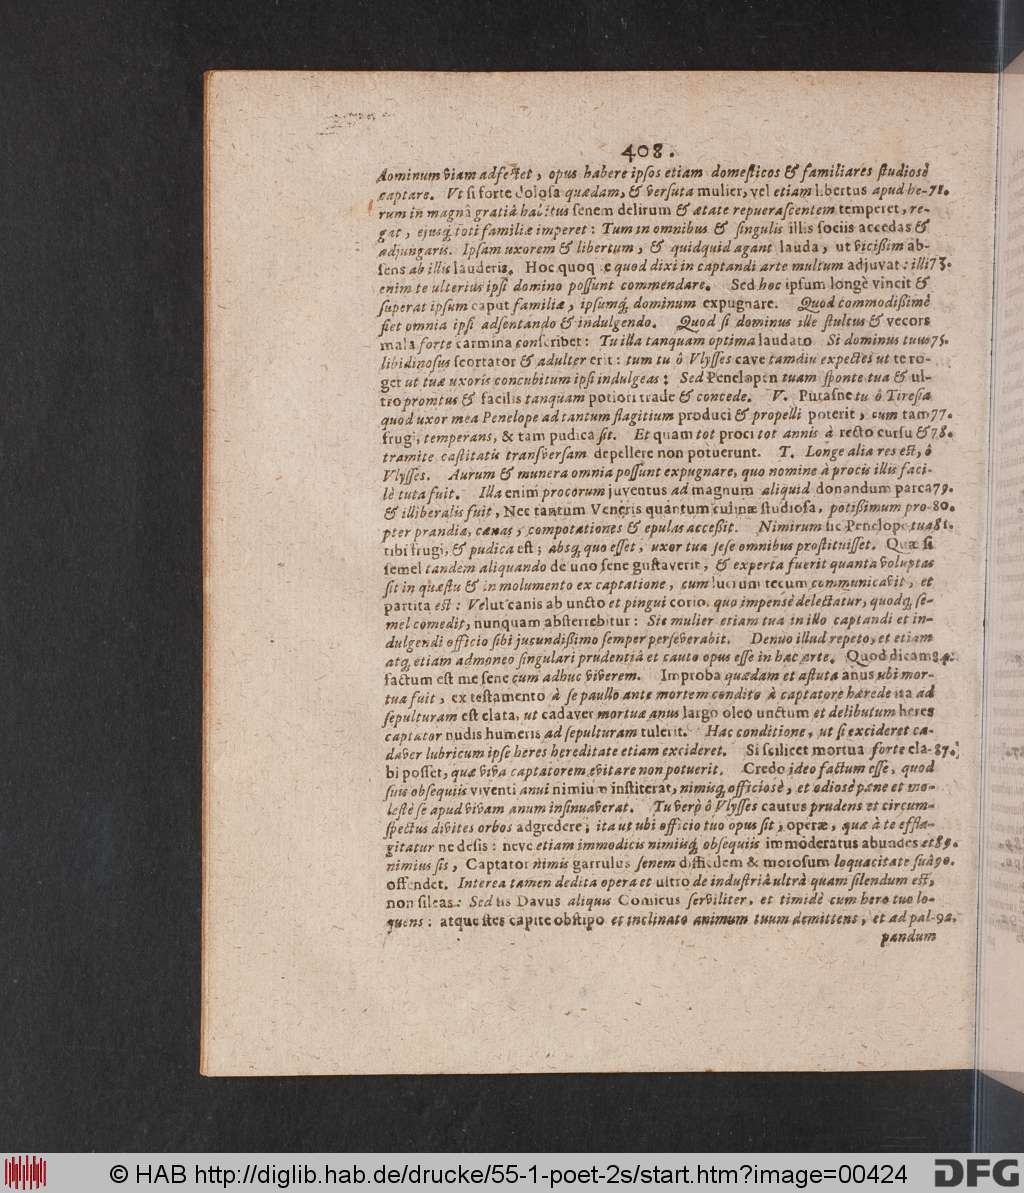 408.
dominum viam adfectet, opus habere ipsos etiam domesticos & familiares studiosè
captare. Vt si forte dolosa quædam, & versuta mulier, vel etiam libertus apud he- 71.
rum in magnâ gratiâ habitus senem delirum & ætate repuerascentem temperet, re-
gat, ejusq́; toti familiæ imperet: Tum in omnibus & singulis illis sociis accedas &
adjungaris. Ipsam uxorem & libertum, & quidquid agant lauda, ut vicißim ab-
sens ab illis lauderis. Hoc quoq; quod dixi in captandi arte multum adjuvat: illi 73.
enim te ulterius ipsi domino possunt commendare. Sed hoc ipsum longè vincit &
superat ipsum caput familiæ, ipsumq́; dominum expugnare. Quod commodißimè
fiet omnia ipsi adsentando & indulgendo. Quod si dominus ille stultus & vecors
mala forte carmina conscribet: Tu illa tanquam optima laudato Si dominus tuus 75.
libidinosus scortator & adulter erit: tum tu ô Vlysses cave tamdiu expectes ut te ro-
get ut tuæ uxoris concubitum ipsi indulgeas: Sed Penelopen tuam sponte tua & ul-
tro promtus & facilis tanquam potiori trade & concede. V. Putasne tu ô Tiresia
quod uxor mea Penelope ad tantum flagitium produci & propelli poterit, cum tam 77.
frugi, temperans, & tam pudica sit. Et quam tot proci tot annis à recto cursu & 78.
tramite castitatis transversam depellere non potuerunt. T. Longe alia res est, ô
Vlysses. Aurum & munera omnia possunt expugnare, quo nomine à procis illis faci-
lè tuta fuit. Illa enim procorum juventus ad magnum aliquid donandum parca 79.
& illiberalis fuit, Nec tantum Veneris quantum culinæ studiosa, potißimum pro- 80.
pter prandia, cænas, compotationes & epulas accessit. Nimirum sic Penelope tua 81.
tibi frugi, & pudica est; absq; quo esset, uxor tua sese omnibus prostituisset. Quæ si
semel tandem aliquando de uno sene gustaverit, & experta fuerit quanta voluptas
sit in quæstu & in molumento ex captatione, cum lucrum tecum communicavit, et
partita est: Velut canis ab uncto et pingui corio, quo impensè delectatur, quodq; se-
mel comedit, nunquam absterrebitur: Sic mulier etiam tua in illo captandi et in-
dulgendi officio sibi jucundißimo semper perseverabit. Denuo illud repeto, et etiam
atq; etiam admoneo singulari prudentiâ et cauto opus esse in hac arte. Quod dicam 84.
factum est me sene cum adhuc viverem. Improba quædam et astuta anus ubi mor-
tua fuit, ex testamento à se paullo ante mortem condito à captatore hærede ita ad
sepulturam est elata, ut cadaver mortuæ anus largo oleo unctum et delibutum heres
captator nudis humeris ad sepulturam tulerit. Hac conditione, ut si excideret ca-
daver lubricum ipse heres hereditate etiam excideret. Si scilicet mortua forte ela- 87.
bi posset, quæ viva captatorem evitare non potuerit. Credo ideo factum esse, quod
suis obsequiis viventi anui nimium institerat, nimisq; officiosè, et odiosè pæne et mo-
lestè se apud vivam anum insinuaverat. Tu verò ô Vlysses cautus prudens et circum-
spectus divites orbos adgredere, ita ut ubi officio tuo opus sit, operæ, quæ à te effla-
gitatur ne desis: neve etiam immodicis nimiisq́; obsequiis immoderatus abundes et 89.
nimius sis, Captator nimis garrulus senem difficilem & morosum loquacitate suâ 90.
offendet. Interea tamen dedita opera et ultro de industriâ ultrà quam silendum est,
non sileas: Sed sis Davus aliquis Comicus serviliter, et timidè cum hero tuo lo-
quens: atque stes capite obstipo et inclinato animum tuum demittens, et ad pal- 92.
pandum
© HAB http://diglib.hab.de/drucke/55-1-poet-2s/start.htm?image=00424
DFG